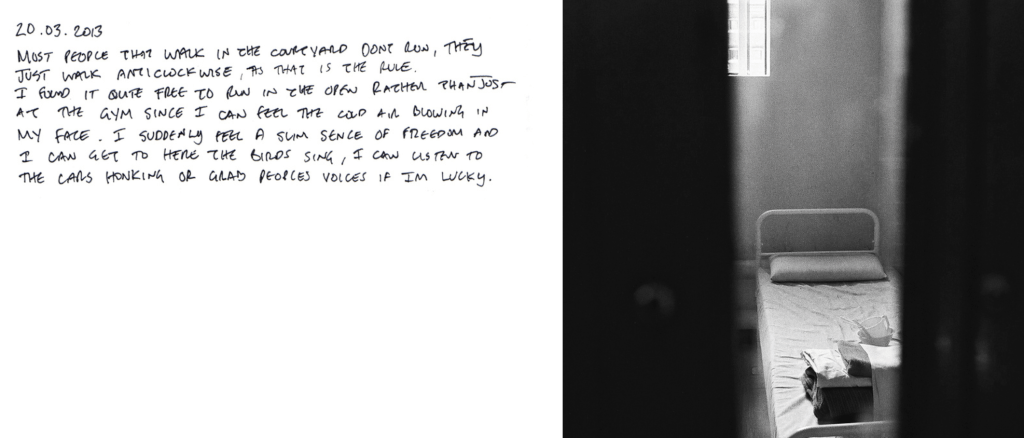 20.03.2013
MOST PEOPLE THAT WALK IN THE COURTYARD DONT RUN, THEY
JUST WALK ANTICLOCKWISE, AS THAT IS THE RULE.
I FOUND IT QUITE FREE TO RUN IN THE OPEN RATHER THAN JUST
AT THE GYM SINCE I CAN FEEL THE COLD AIR BLOWING IN
MY FACE. I SUDDENLY FEEL A SLIM SENCE OF FREEDOM AND
I CAN GET TO HERE THE BIRDS SING, I CAN LISTEN TO
THE CARS HONKING OR GRAB PEOPLES VOICES IF IM LUCKY.